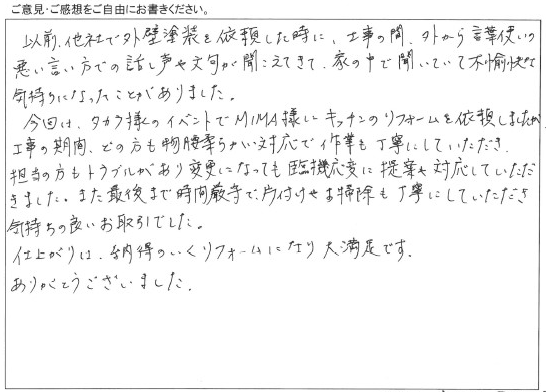 ご意見・ご感想をご自由にお書きください。
以前、他社で外壁塗装を依頼した時に、工事の間、外から言葉使いの
悪い言い方での話し声や文句が聞こえてきて、家の中で聞いていて不愉快な
気持ちになったことがありました。
今回は、タカラ様のイベントでMIMA様にキッチンのリフォームを依頼しましたが
工事の期間、どの方も物腰柔らかい対応で作業も丁寧にしていただき、
担当の方もトラブルがあり変更になっても臨機応変に提案や対応していただ
きました。また最後まで時間厳守で片付けやお掃除も丁寧にしていただき
気持ちの良いお取引でした。
仕上がりは、納得のいくリフォームになり大満足です。
ありがとうございました。